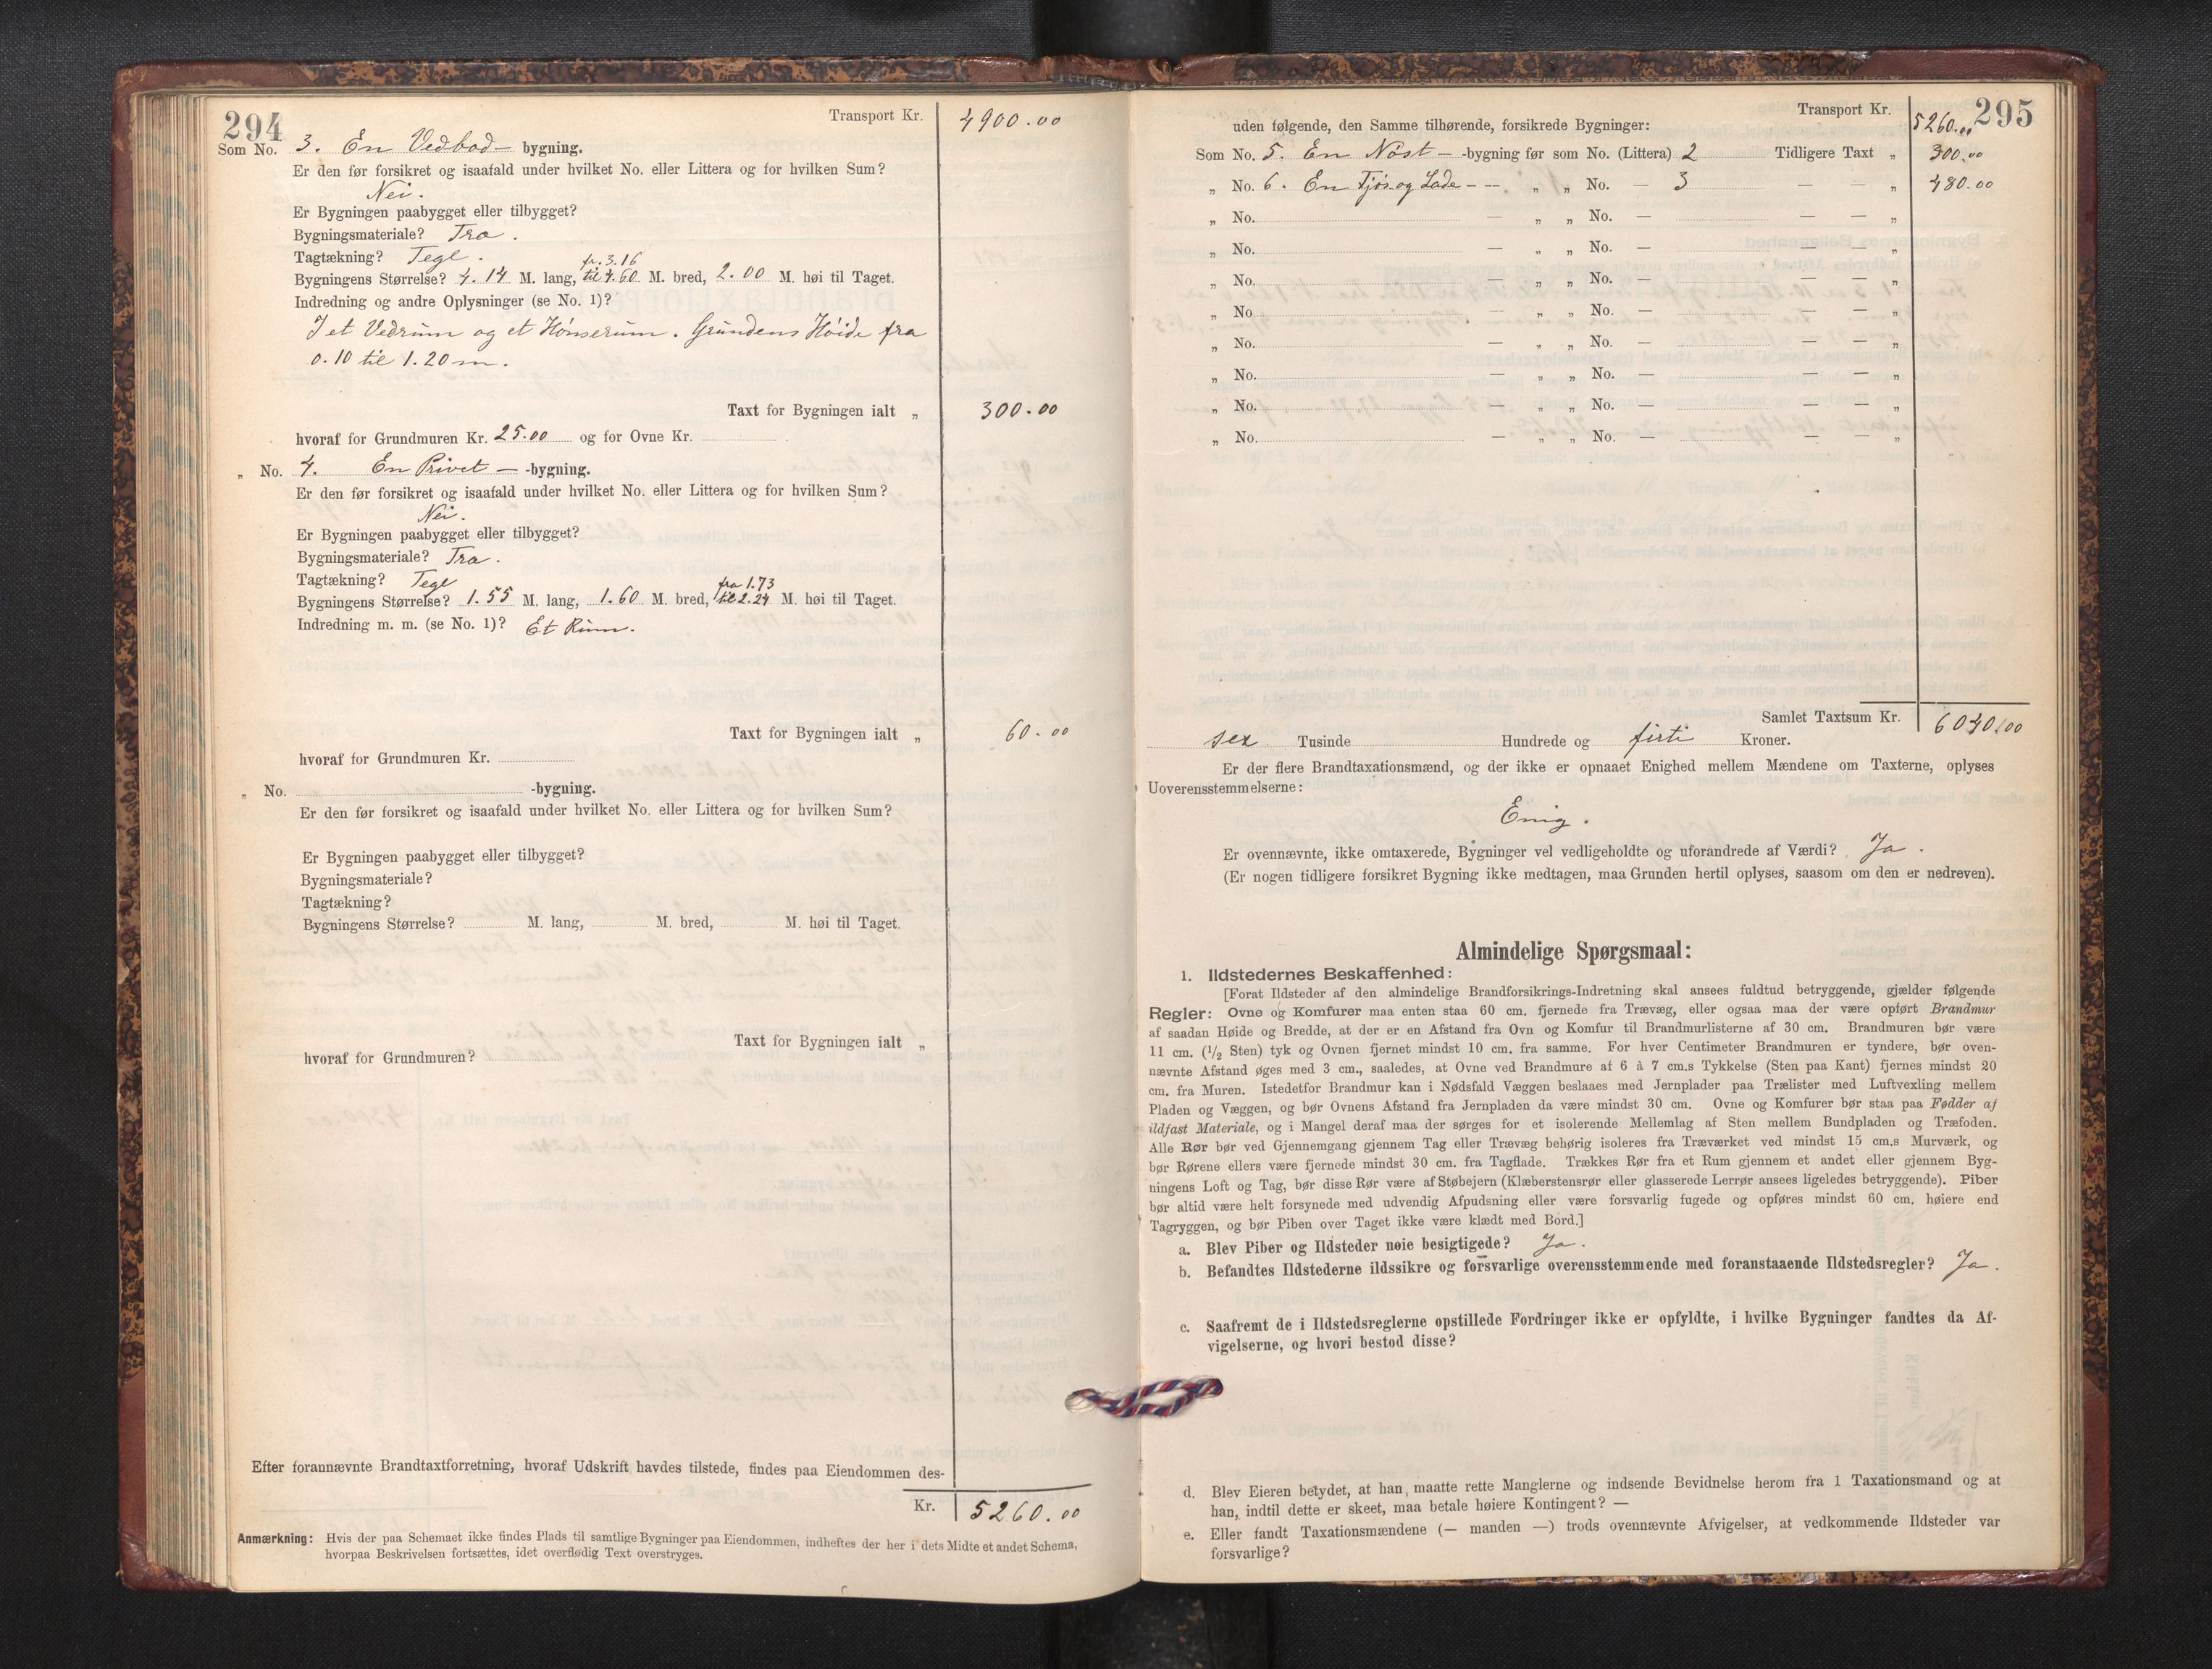 294
Transport Kr. 4900.00
Som No. 3. En Vedbod- bygning.
Er den før forsikret og isaafald under hvilket No. eller Littera og for hvilken Sum?
Nei.
Er Bygningen paabygget eller tilbygget?
Bygningsmateriale? Træ.
Tagtækning? Tegl.
fr. 3.16
Bygningens Størrelse? 4.14 M. lang, til 4.60 M. bred, 2.00 M. høi til Taget.
Indredning og andre Oplysninger (se No. 1)?
I et Vedrum og et Hönserum. Grundens Höide fra
0.10 til 1.20 m.
Taxt for Bygningen ialt „ 300.00
hvoraf for Grundmuren Kr. 25.00 og for Ovne Kr.
„ No. 4. En Privet - -bygning.
Er den før forsikret og isaafald under hvilket No. eller Littera og for hvilken Sum?
Nei.
Er Bygningen paabygget eller tilbygget?
Bygningsmateriale? Træ.
Tagtækning? Tegl
fra 1.73
Bygningens Størrelse? 1.55 M. lang, 1.60 M. bred, til 2.24 M. høi til Taget.
Indredning m. m. (se No. 1)? Et Rum.
Taxt for Bygningen ialt „ 60.00
hvoraf for Grundmuren Kr.
„ No. -bygning.
Er den før forsikret og isaafald under hvilket No. eller Littera og for hvilken Sum?
Er Bygningen paabygget eller tilbygget?
Bygningsmateriale?
Tagtækning?
Bygningens Størrelse? M. lang, M. bred, M. høi til Taget.
Taxt for Bygningen ialt „
hvoraf for Grundmuren?
Efter forannævnte Brandtaxtforretning, hvoraf Udskrift havdes tilstede, findes paa Eiendommen des-
Kr. 5260.00
Anmærkning: Hvis der paa Schemaet ikke findes Plads til samtlige Bygninger paa Eiendommen, indheftes der her i dets Midte et andet Schema,
hvorpaa Beskrivelsen fortsættes, idet overflødig Text overstryges.
295
Transport Kr. 5260.00
uden følgende, den Samme tilhørende, forsikrede Bygninger:
Som No. 5. En Nöst - -bygning før som No. (Littera) 2 Tidligere Taxt „ 300.00
„ No. 6. En Fjös og Lade - — „ „ No. — 3 — — „ 480.00
„ No. — „ „ No. — — — „
„ No. — „ „ No. — — — „
„ No. — „ „ No. — — — „
„ No. — „ „ No. — — — „
„ No. — „ „ No. — — — „
„ No. — „ „ No. — — — „
„ No. — „ „ No. — — — „
„ No. — „ „ No. — — — „
Samlet Taxtsum Kr. 6040.00
sex Tusinde Hundrede og firti Kroner.
Er der flere Brandtaxationsmænd, og der ikke er opnaaet Enighed mellem Mændene om Taxterne, oplyses
Uoverensstemmelserne:
Enig.
Er ovennævnte, ikke omtaxerede, Bygninger vel vedligeholdte og uforandrede af Værdi? Ja.
(Er nogen tidligere forsikret Bygning ikke medtagen, maa Grunden hertil oplyses, saasom om den er nedreven).
Almindelige Spørgsmaal:
1. Ildstedernes Beskaffenhed:
[Forat Ildsteder af den almindelige Brandforsikrings-Indretning skal ansees fuldtud betryggende, gjælder følgende
Regler: Ovne og Komfurer maa enten staa 60 cm. fjernede fra Trævæg, eller ogsaa maa der være opført Brandmur
af saadan Høide og Bredde, at der er en Afstand fra Ovn og Komfur til Brandmurlisterne af 30 cm. Brandmuren bør være
11 cm. (1/2 Sten) tyk og Ovnen fjernet mindst 10 cm. fra samme. For hver Centimeter Brandmuren er tyndere, bør oven-
nævnte Afstand øges med 3 cm., saaledes, at Ovne ved Brandmure af 6 à 7 cm.s Tykkelse (Sten paa Kant) fjernes mindst 20
cm. fra Muren. Istedetfor Brandmur kan i Nødsfald Væggen beslaaes med Jernplader paa Trælister med Luftvexling mellem
Pladen og Væggen, og bør Ovnens Afstand fra Jernpladen da være mindst 30 cm. Ovne og Komfurer bør staa paa Fødder af
ildfast Materiale, og i Mangel deraf maa der sørges for et isolerende Mellemlag af Sten mellem Bundpladen og Træfoden.
Alle Rør bør ved Gjennemgang gjennem Tag eller Trævæg behørig isoleres fra Træværket ved mindst 15 cm.s Murværk, og
bør Rørene ellers være fjernede mindst 30 cm. fra Tagflade. Trækkes Rør fra et Rum gjennem et andet eller gjennem Byg-
ningens Loft og Tag, bør disse Rør være af Støbejern (Klæberstensrør eller glasserede Lerrør ansees ligeledes betryggende). Piber
bør altid være helt forsynede med udvendig Afpudsning eller være forsvarlig fugede og opføres mindst 60 cm. høiere end
Tagryggen, og bør Piben over Taget ikke være klædt med Bord.]
a. Blev Piber og Ildsteder nøie besigtigede? Ja.
b. Befandtes Ildstederne ildssikre og forsvarlige overensstemmende med foranstaaende Ildstedsregler? Ja.
c. Saafremt de i Ildstedsreglerne opstillede Fordringer ikke er opfyldte, i hvilke Bygninger fandtes da Af-
vigelserne, og hvori bestod disse?
d. Blev Eieren betydet, at han maatte rette Manglerne og indsende Bevidnelse herom fra 1 Taxationsmand og at
han, indtil dette er skeet, maa betale høiere Kontingent? —
e. Eller fandt Taxationsmændene (— manden —) trods ovennævnte Afvigelser, at vedkommende Ildsteder var
forsvarlige?